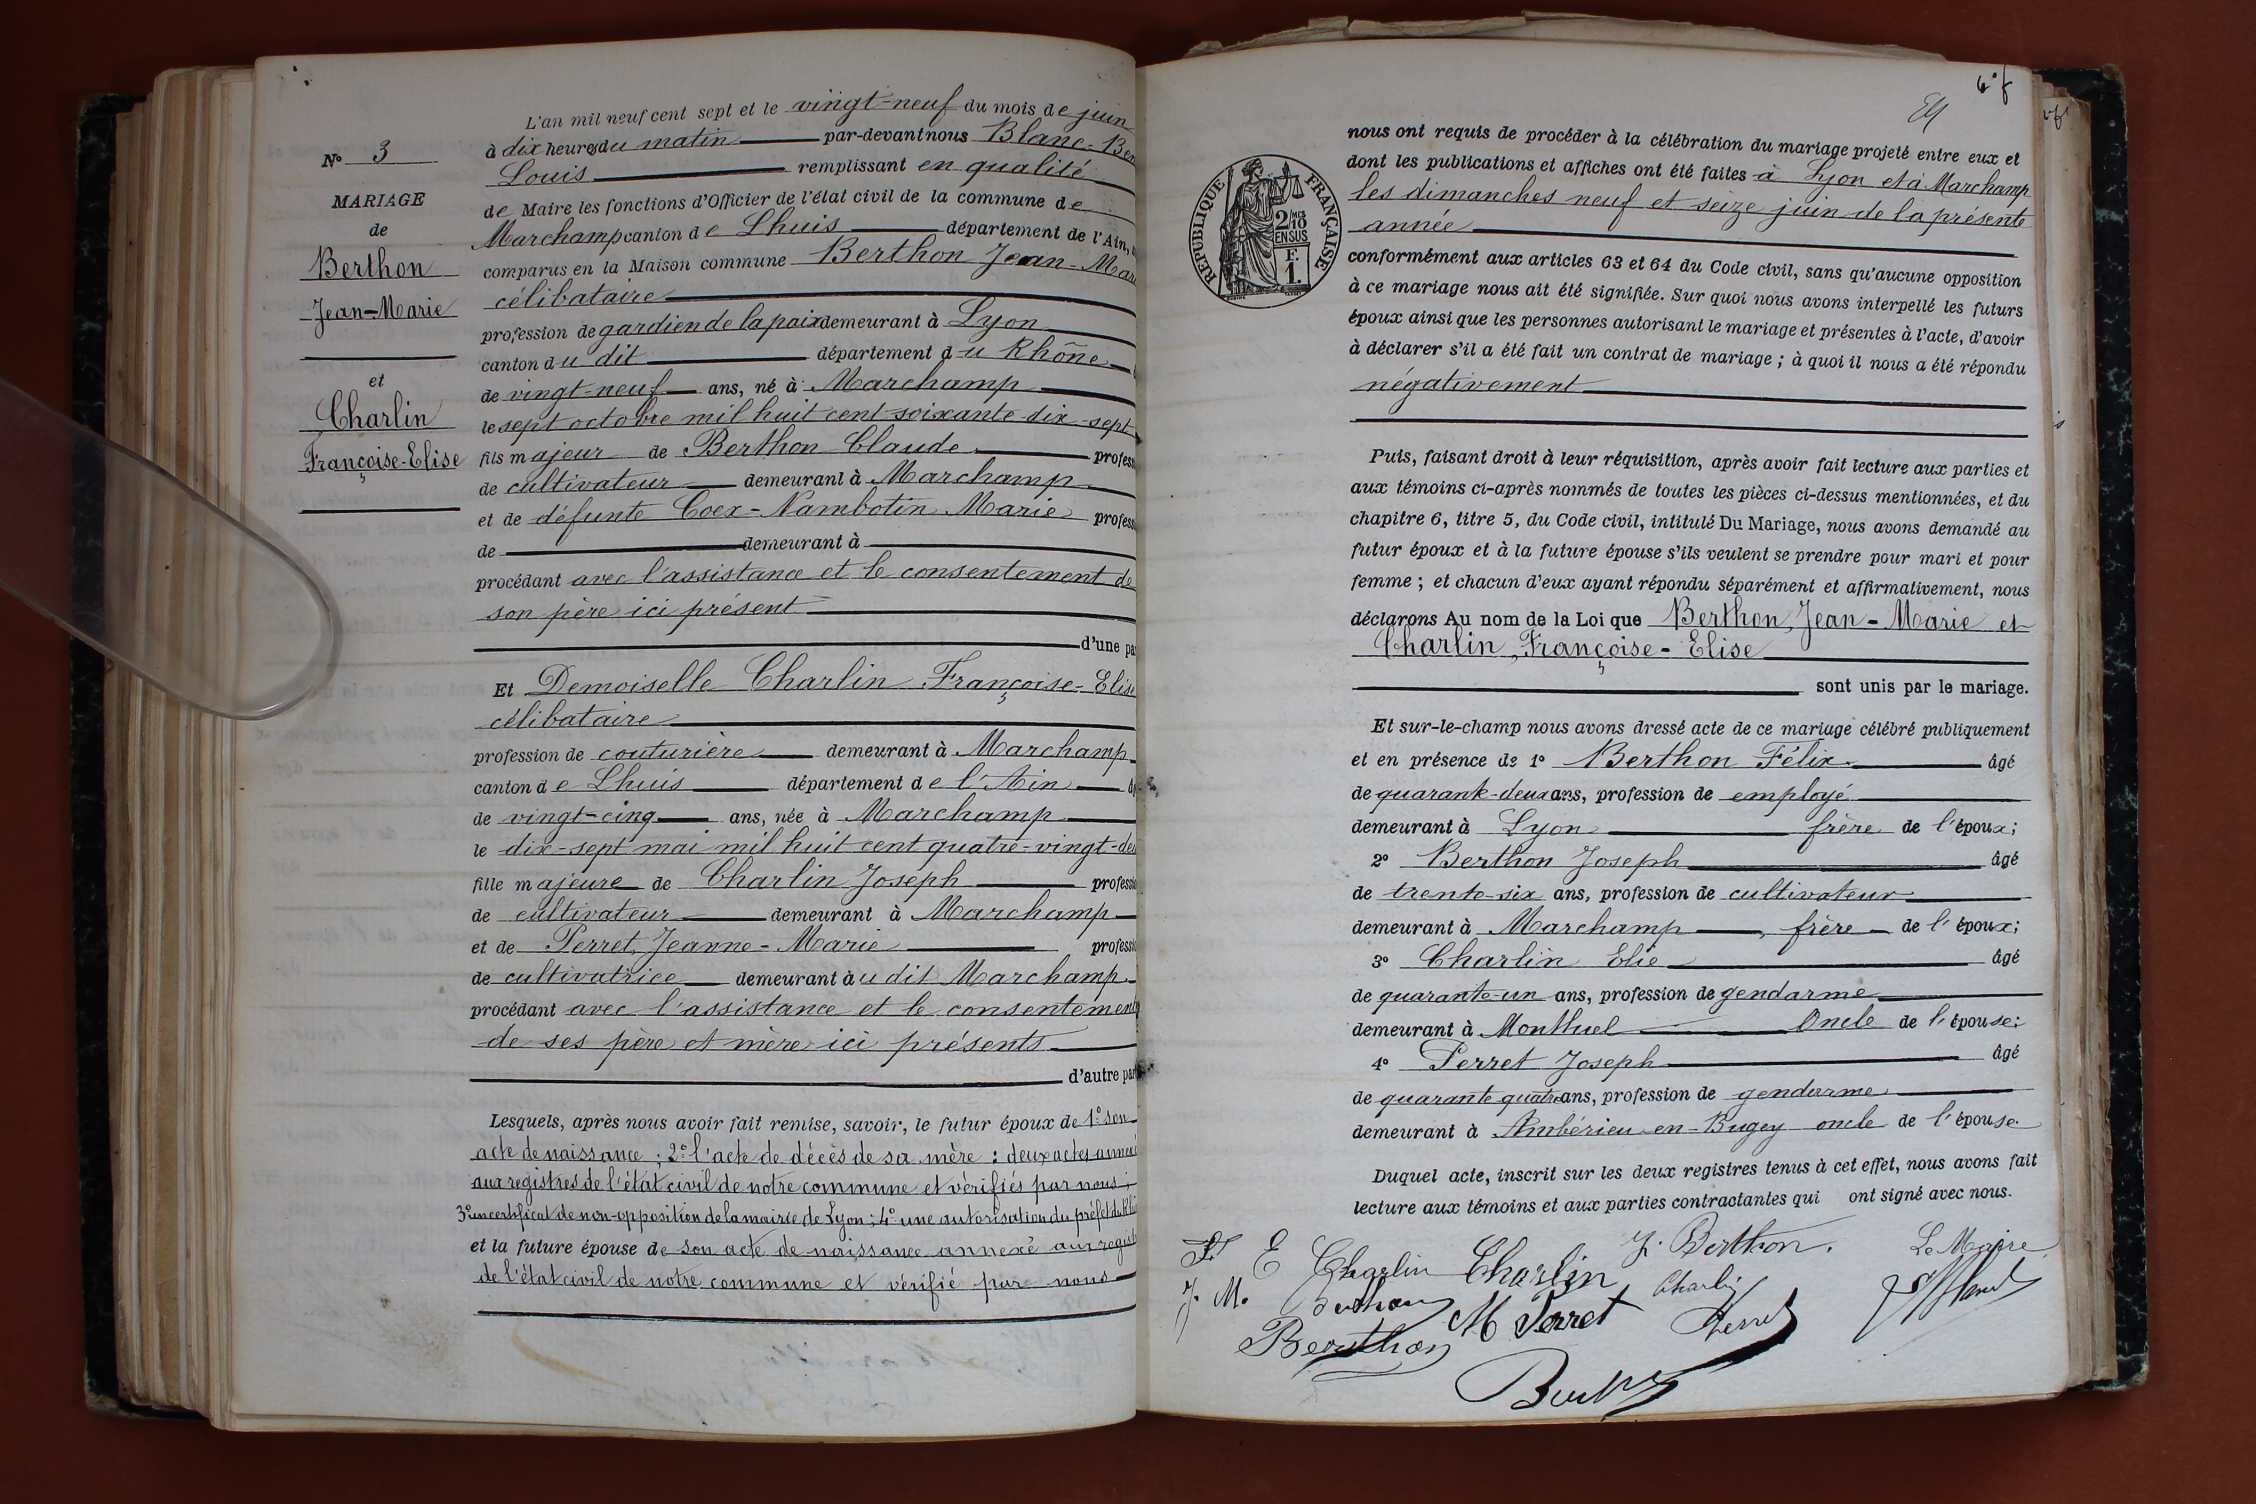 N° 3
MARIAGE
de
Berthon
Jean-Marie
et
Charlin
Françoise-Elise
L'an mil neuf cent sept et le vingt-neuf du mois de juin
à dix heures du matin par-devant nous Blanc-Ben
Louis remplissant en qualité
de Maire les fonctions d'Officier de l'état civil de la commune de
Marchamp canton de Lhuis département de l'Ain,
comparus en la Maison commune Berthon Jean-Mari
célibataire
profession de gardien de la paix demeurant à Lyon
canton du dit département du Rhône
de vingt-neuf ans, né à Marchamp
le sept octobre mil huit cent soixante-dix-sept
fils majeur de Berthon Claude profess
de cultivateur demeurant à Marchamp
et de défunte Coex-Nambotin Marie profess
de demeurant à
procédant avec l'assistance et le consentement de
son père ici présent
d'une pa
Et Demoiselle Charlin Françoise-Elise
célibataire
profession de couturière demeurant à Marchamp
canton de Lhuis département de l'Ain
de vingt-cinq ans, née à Marchamp
le dix-sept mai mil huit cent quatre-vingt-deu
fille majeure de Charlin Joseph professi
de cultivateur demeurant à Marchamp
et de Perret Jeanne-Marie professi
de cultivatrice demeurant àu dit Marchamp
procédant avec l'assistance et le consentement
de ses père et mère ici présents
d'autre part
Lesquels, après nous avoir fait remise, savoir, le futur époux de 1° son
acte de naissance ; 2° l'acte de décès de sa mère : deux actes annexés
aux registres de l'état civil de notre commune et vérifiés par nous ;
3° un certificat de non-opposition de la mairie de Lyon ; 4° une autorisation du préfet du Rhô
et la future épouse de son acte de naissance annexé aux regist
de l'état civil de notre commune et vérifié par nous
RÉPUBLIQUE FRANÇAISE
2/10 MES
EN SUS
F.
1.
nous ont requis de procéder à la célébration du mariage projeté entre eux et
dont les publications et affiches ont été faites à Lyon et à Marchamp
les dimanches neuf et seize juin de la présente
année
conformément aux articles 63 et 64 du Code civil, sans qu'aucune opposition
à ce mariage nous ait été signifiée. Sur quoi nous avons interpellé les futurs
époux ainsi que les personnes autorisant le mariage et présentes à l'acte, d'avoir
à déclarer s'il a été fait un contrat de mariage ; à quoi il nous a été répondu
négativement
Puis, faisant droit à leur réquisition, après avoir fait lecture aux parties et
aux témoins ci-après nommés de toutes les pièces ci-dessus mentionnées, et du
chapitre 6, titre 5, du Code civil, intitulé Du Mariage, nous avons demandé au
futur époux et à la future épouse s'ils veulent se prendre pour mari et pour
femme ; et chacun d'eux ayant répondu séparément et affirmativement, nous
déclarons Au nom de la Loi que Berthon, Jean-Marie et
Charlin, Françoise-Elise
sont unis par le mariage.
Et sur-le-champ nous avons dressé acte de ce mariage célébré publiquement
et en présence de 1° Berthon Félix âgé
de quarante-deux ans, profession de employé
demeurant à Lyon frère de l'époux;
2° Berthon Joseph âgé
de trente-six ans, profession de cultivateur
demeurant à Marchamp, frère de l'époux;
3° Charlin Elie âgé
de quarante-un ans, profession de gendarme
demeurant à Montluel Oncle de l'épouse;
4° Perret Joseph âgé
de quarante quatre ans, profession de gendarme
demeurant à Ambérieu-en-Bugey oncle de l'épouse
Duquel acte, inscrit sur les deux registres tenus à cet effet, nous avons fait
lecture aux témoins et aux parties contractantes qui ont signé avec nous.
E Charlin Charlin J. Berthon. Le Maire
J. M. Berthon M Perret Charlin Perret
Berthon